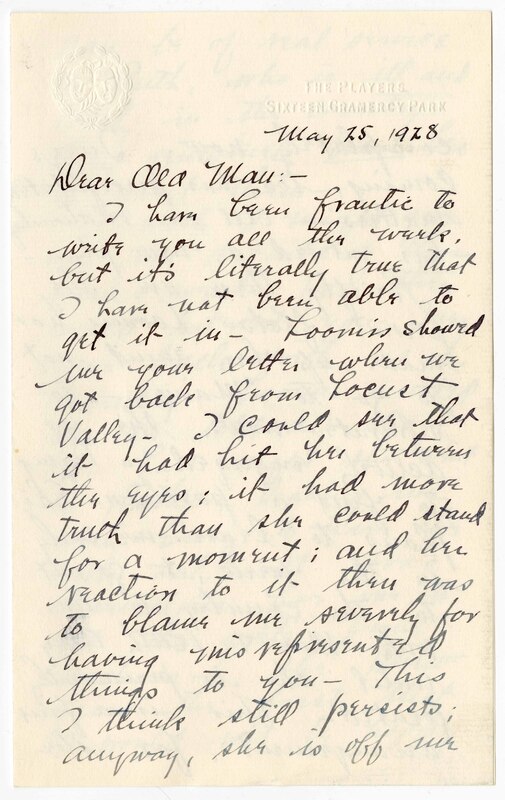 THE PLAYERS
SIXTEEN GRAMERCY PARK
May 25, 1928
Dear Old Man:-
I have been frantic to
write you all the week,
but it's literally true that
I have not been able to
get it in - Loomis showed
me your letter when we
got back from Locust
Valley - I could see that
it had hit her between
the eyes; it had more
truth than she could stand
for a moment; and her
reaction to it then was
to blame me severely for
having misrepresented
things to you - This
I think still persists;
anyway, she is off me